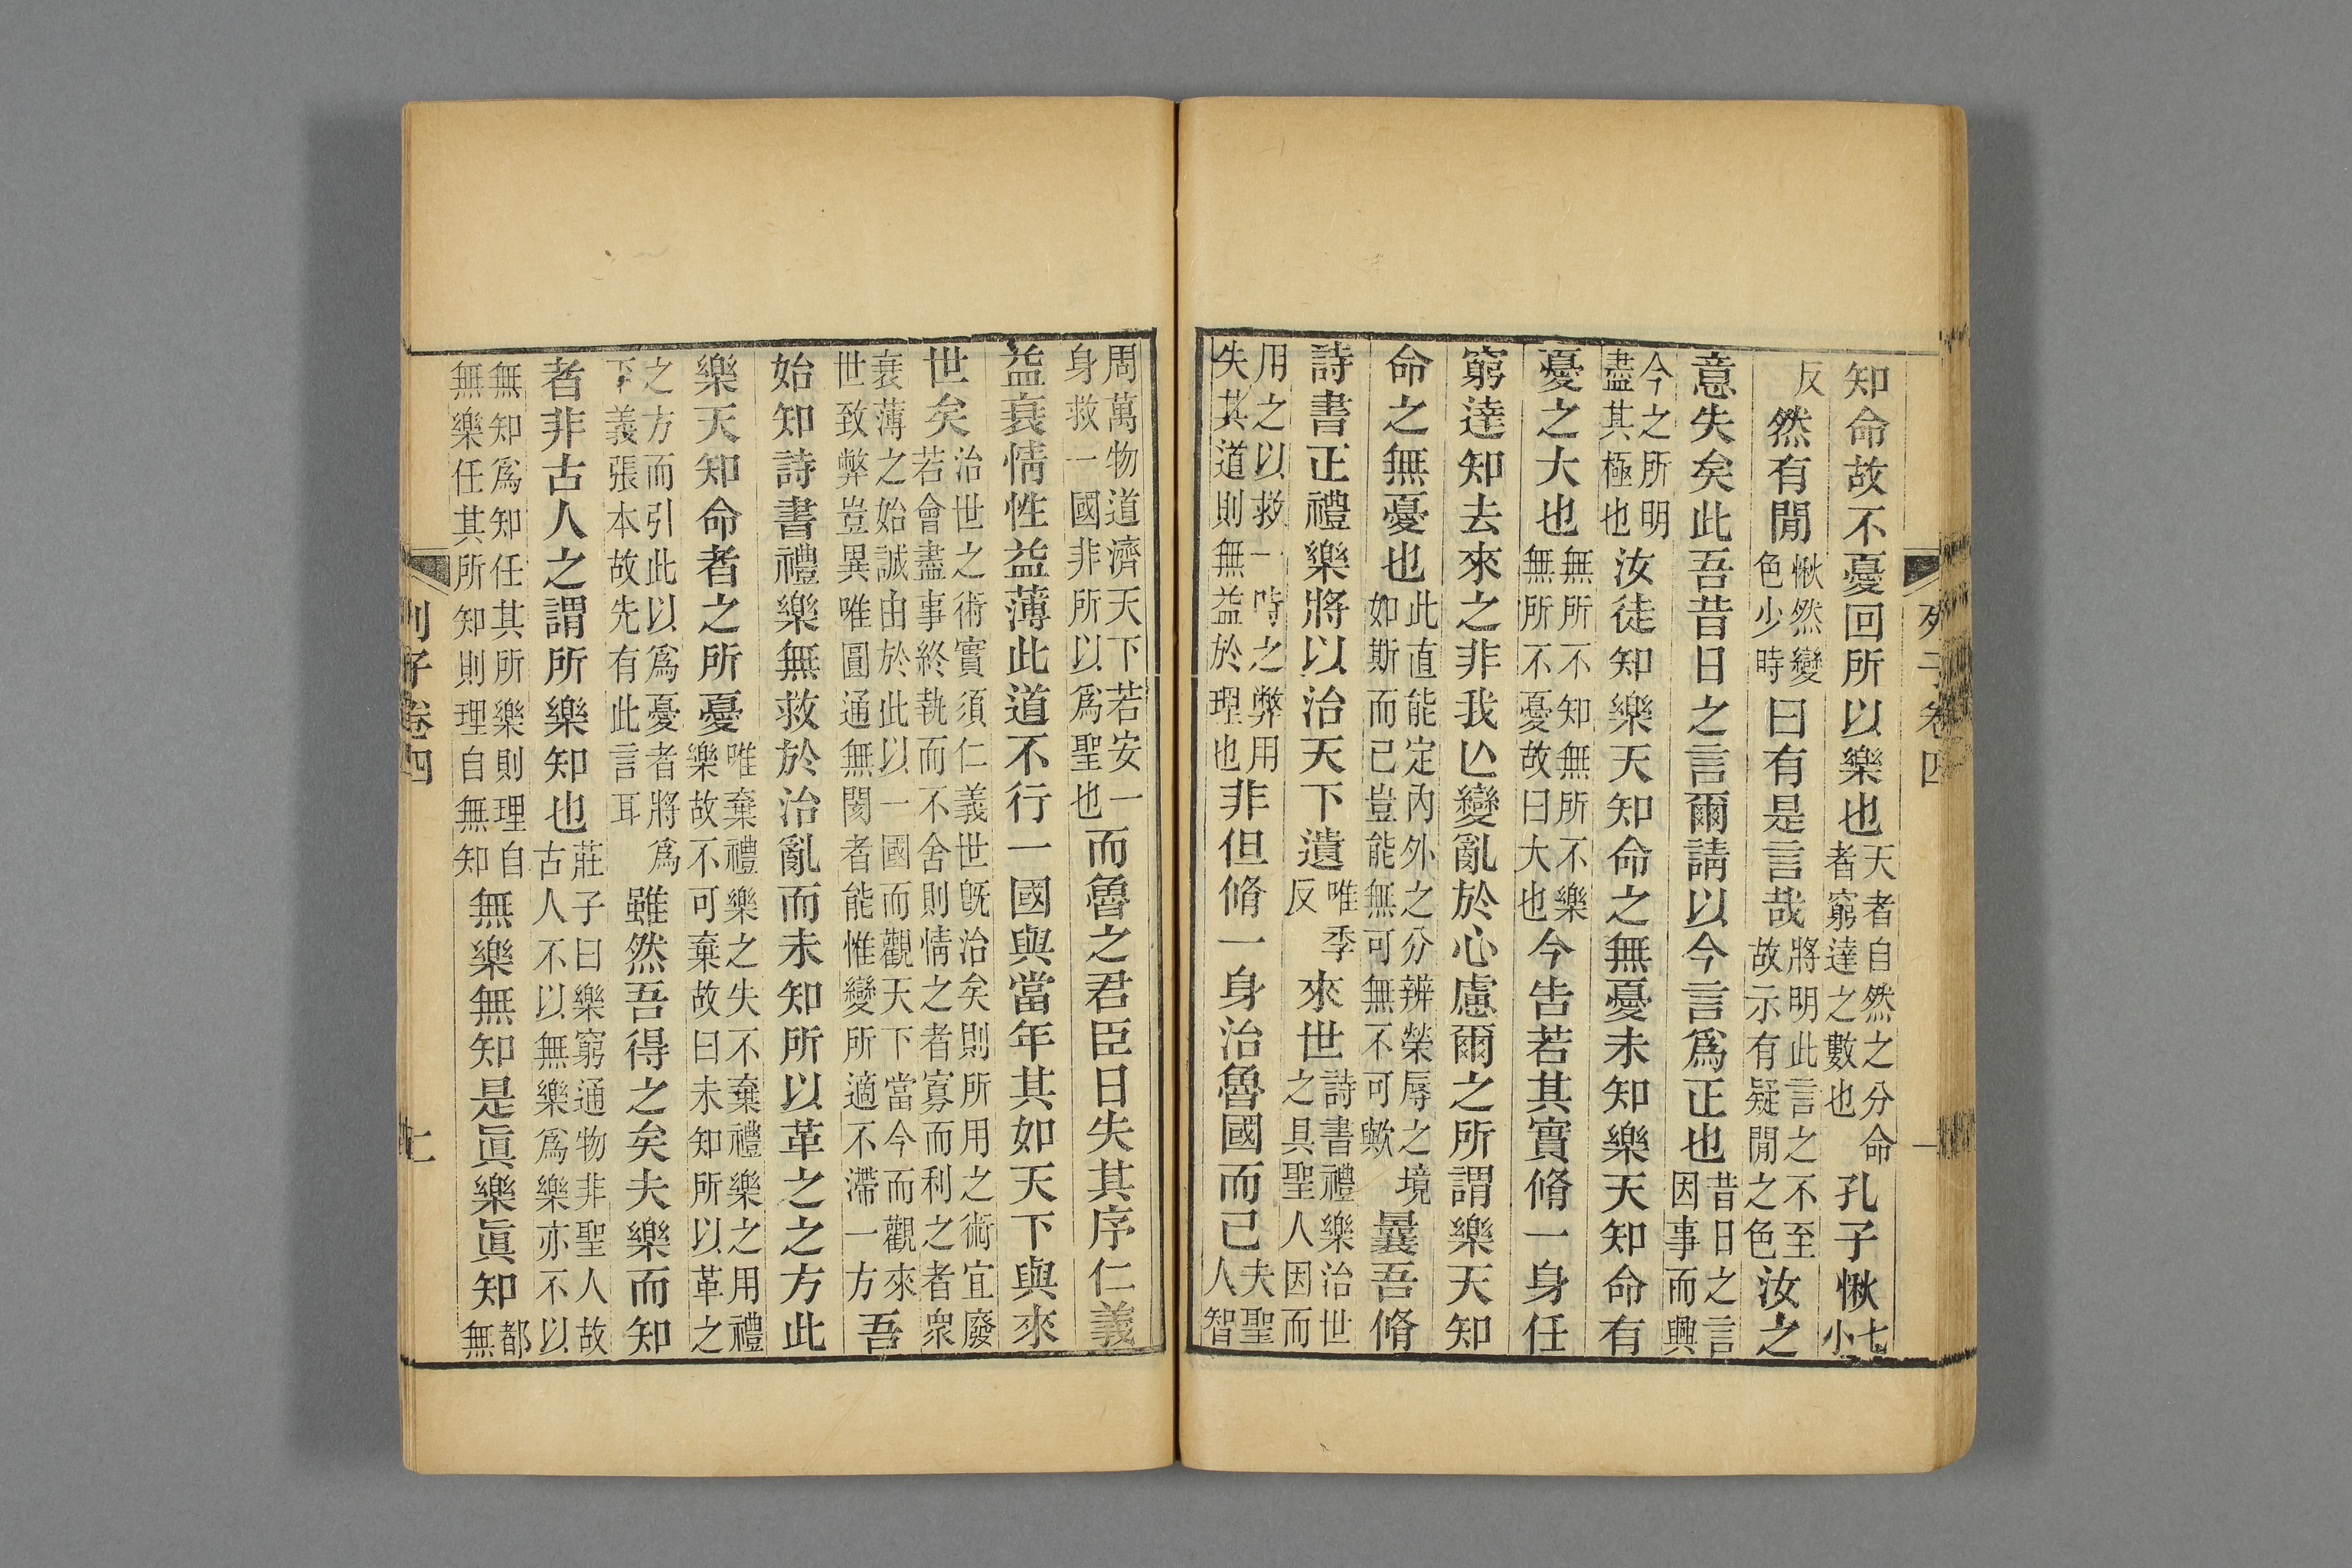 知命故不憂回所以樂也天者自然之分命者窮達之數也孔子愀七小
反然有閒愀然變色少時曰有是言哉將明此言之不至故示有疑閒之色汝之
意失矣此吾昔日之言爾請以今言爲正也昔日之言因事而興
今之所明盡其極也汝徒知樂天知命之無憂未知樂天知命有
憂之大也無所不知無所不樂無所不憂故曰大也今告若其實脩一身任
窮達知去來之非我亾變亂於心慮爾之所謂樂天知
命之無憂也此直能定內外之分辨榮辱之境如斯而已豈能無可無不可歟曩吾脩
詩書正禮樂將以治天下遺唯季反來世詩書禮樂治世之具聖人因而
用之以救一時之弊用失其道則無益於理也非但脩一身治魯國而已夫聖人智
周萬物道濟天下若安一身救一國非所以爲聖也而魯之君臣日失其序仁義
益衰情性益薄此道不行一國與當年其如天下與來
世矣治世之術實須仁義世旣治矣則所用之術宜廢若會盡事終執而不舍則情之者寡而利之者衆
衰薄之始誠由於此以一國而觀天下當今而觀來世致弊豈異唯圓通無閡者能惟變所適不滯一方吾
始知詩書禮樂無救於治亂而未知所以革之之方此
樂天知命者之所憂唯棄禮樂之失不棄禮樂之用禮樂故不可棄故曰未知所以革之
之方而引此以爲憂者將爲下義張本故先有此言耳雖然吾得之矣夫樂而知
者非古人之謂所樂知也莊子曰樂窮通物非聖人故古人不以無樂爲樂亦不以
無知爲知任其所樂則理自無樂任其所知則理自無知無樂無知是眞樂眞知都無
列子卷四
七